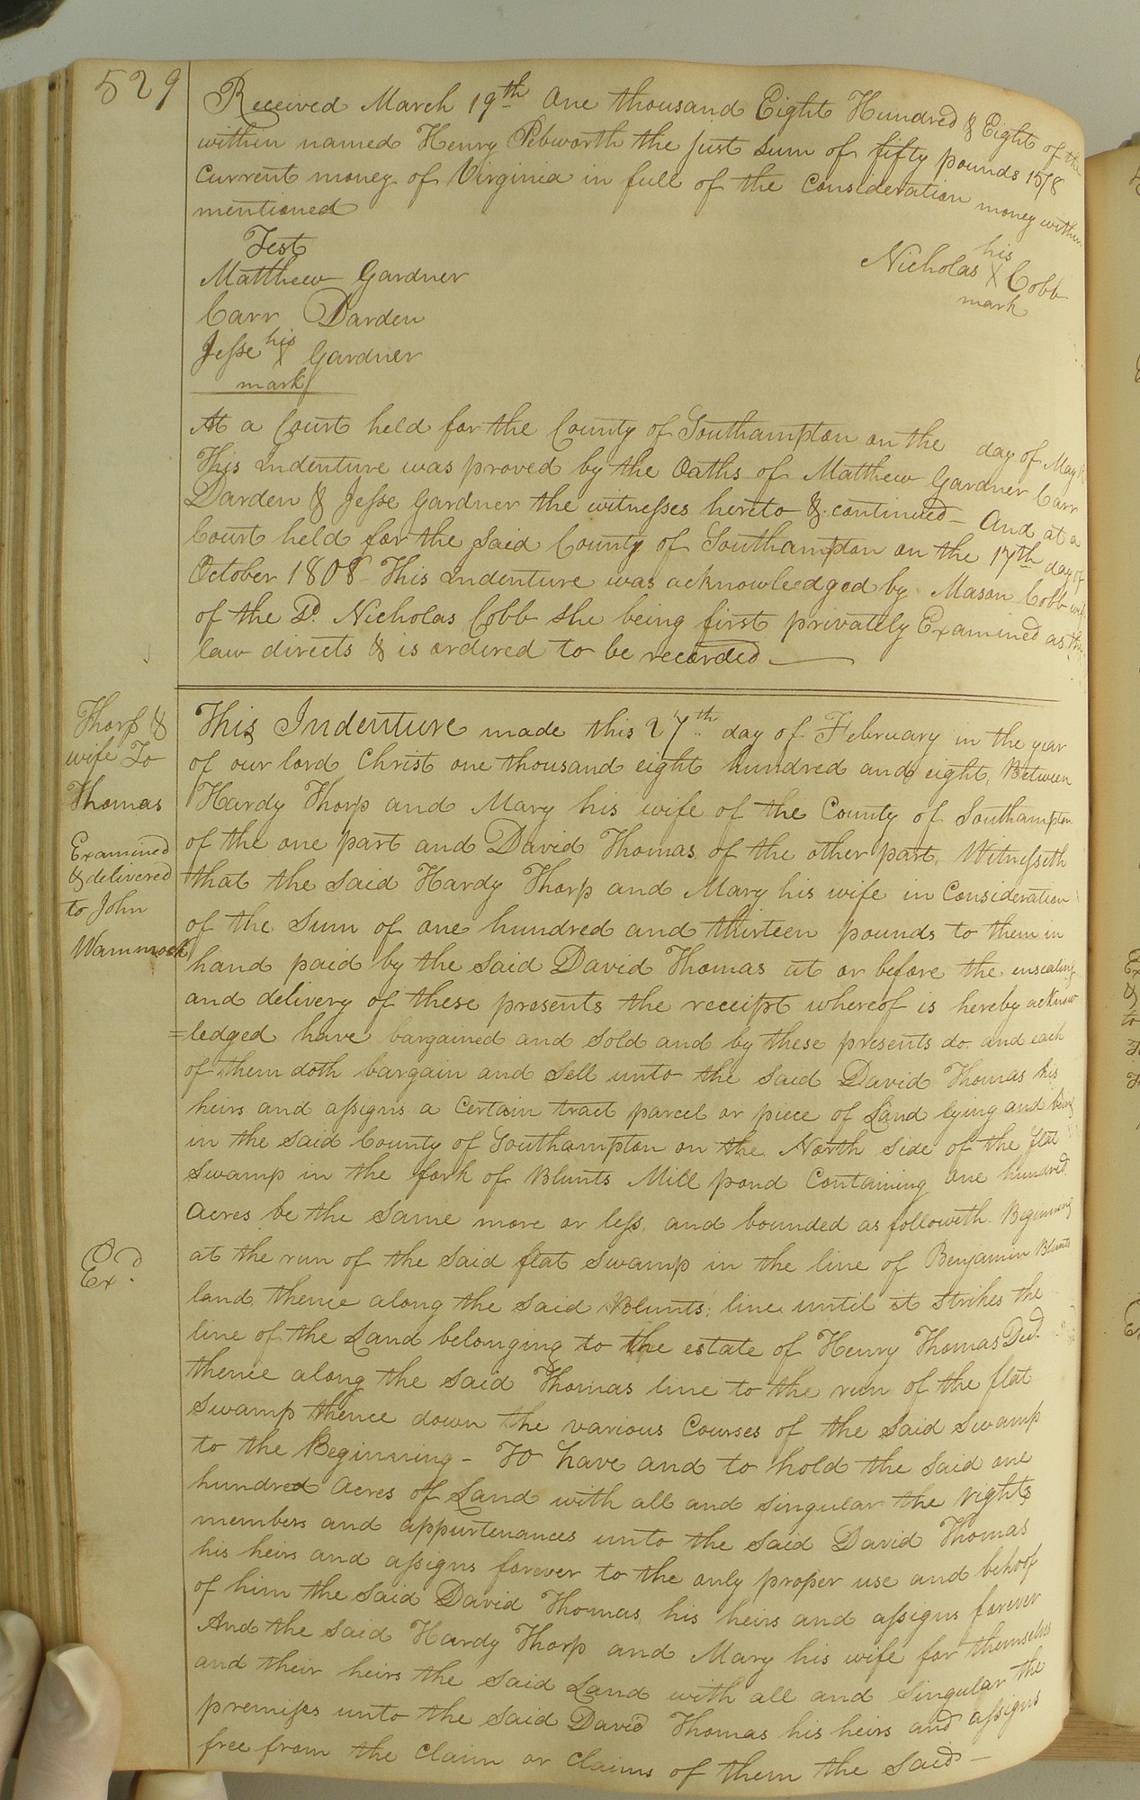 529
Received March 19th One thousand Eight Hundred & Eight of the
within named Henry Pebworth the just sum of fifty pounds 15/8
Current money of Virginia in full of the Consideration money within
mentioned
Test
Matthew Gardner
Carr Darden
Jesse his X Gardner
mark
his
Nicholas X Cobb
mark
At a Court held for the County of Southampton on the day of May
This Indenture was proved by the Oaths of Matthew Gardner Carr
Darden & Jesse Gardner the witnesses hereto & continued – And at a
Court held for the said County of Southampton on the 17th day of
October 1808 This Indenture was acknowledged by Mason Cobb wife
of the Sd. Nicholas Cobb she being first privately Examined as the
law directs & is ordered to be recorded
Thorp &
wife To
Thomas
Examined
& delivered
to John
Wammock
Exd.
This Indenture made this 27th day of February in the year
of our lord Christ one thousand eight hundred and eight, Between
Hardy Thorp and Mary his wife of the County of Southampton
of the one part and David Thomas of the other part, Witnesseth
that the said Hardy Thorp and Mary his wife in Consideration
of the Sum of one hundred and thirteen pounds to them in
hand paid by the said David Thomas at or before the ensealing
and delivery of these presents the receipt whereof is hereby acknow
=ledged have bargained and sold and by these presents do and each
of them doth bargain and sell unto the said David Thomas his
heirs and assigns a Certain tract parcel or piece of Land lying and being
in the said County of Southampton on the North side of the flat
Swamp in the fork of Blunts Mill pond Containing one hundred
Acres be the same more or less, and bounded as followeth. Beginning
at the run of the said flat Swamp in the line of Benjamin Blunts
land, thence along the said Blunts line until it strikes the
line of the Land belonging to the estate of Henry Thomas Decd.
thence along the said Thomas line to the run of the flat
Swamp thence down the various Courses of the said Swamp
to the Beginning – To have and to hold the said one
hundred Acres of Land with all and singular the rights
members and appurtenances unto the said David Thomas
his heirs and assigns forever to the only proper use and behoof
of him the said David Thomas his heirs and assigns forever
And the said Hardy Thorp and Mary his wife for themselves
and their heirs the said Land with all and singular the
premises unto the said David Thomas his heirs and assigns
free from the Claim or Claims of them the said –